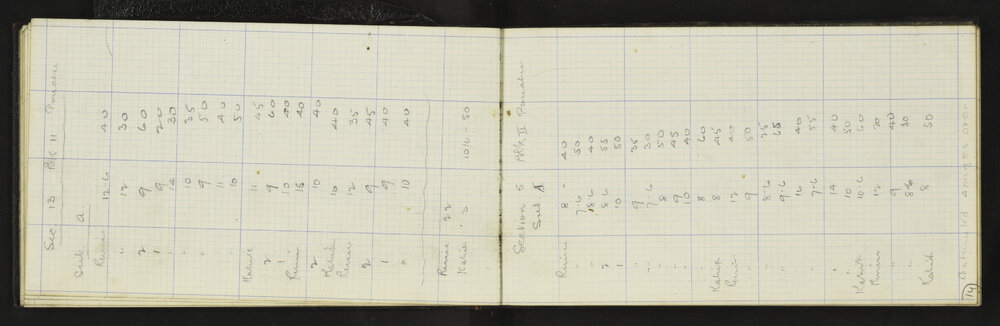 Sec 13 Blk 11
Sub a
Rimu 12-6 40
" 12 30
2 9 60
1 9 20
" 14 30
" 10 35
" 9 50
" 11 40
" 10 50
Kahik 11 45
2 9 60
1 10 40
Rimu 15 40
2 10 40
Kahik 10 40
Rimu 12 35
2 9 45
1 9 40
" 10 40
Rimu 22
Kahik 3 10/6-50
Section 5 Blk II
Sub
Rimu 8 40
" 7-6 50
" 18-6 40
2 8-6 55
1 10 50
" 9 35
" 7-6 30
" 8 50
" 9 45
" 10 40
" 8 60
Kahik 8 45
Rimu 12 40
" 9 50
" 8-6 35
" 9-6 65
" 16 40
" 7-6 55
" 14 40
" 10 50
Kahik 10-6 60
Rimu 12 20
" 9 40
" 8-6 30
Kahik 8 50
14